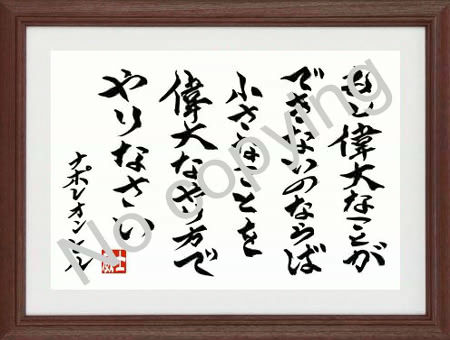 もし偉大なことが
できないのならば
小さなことを
偉大なやり方で
やりなさい
ナポレオンヒル
No copying